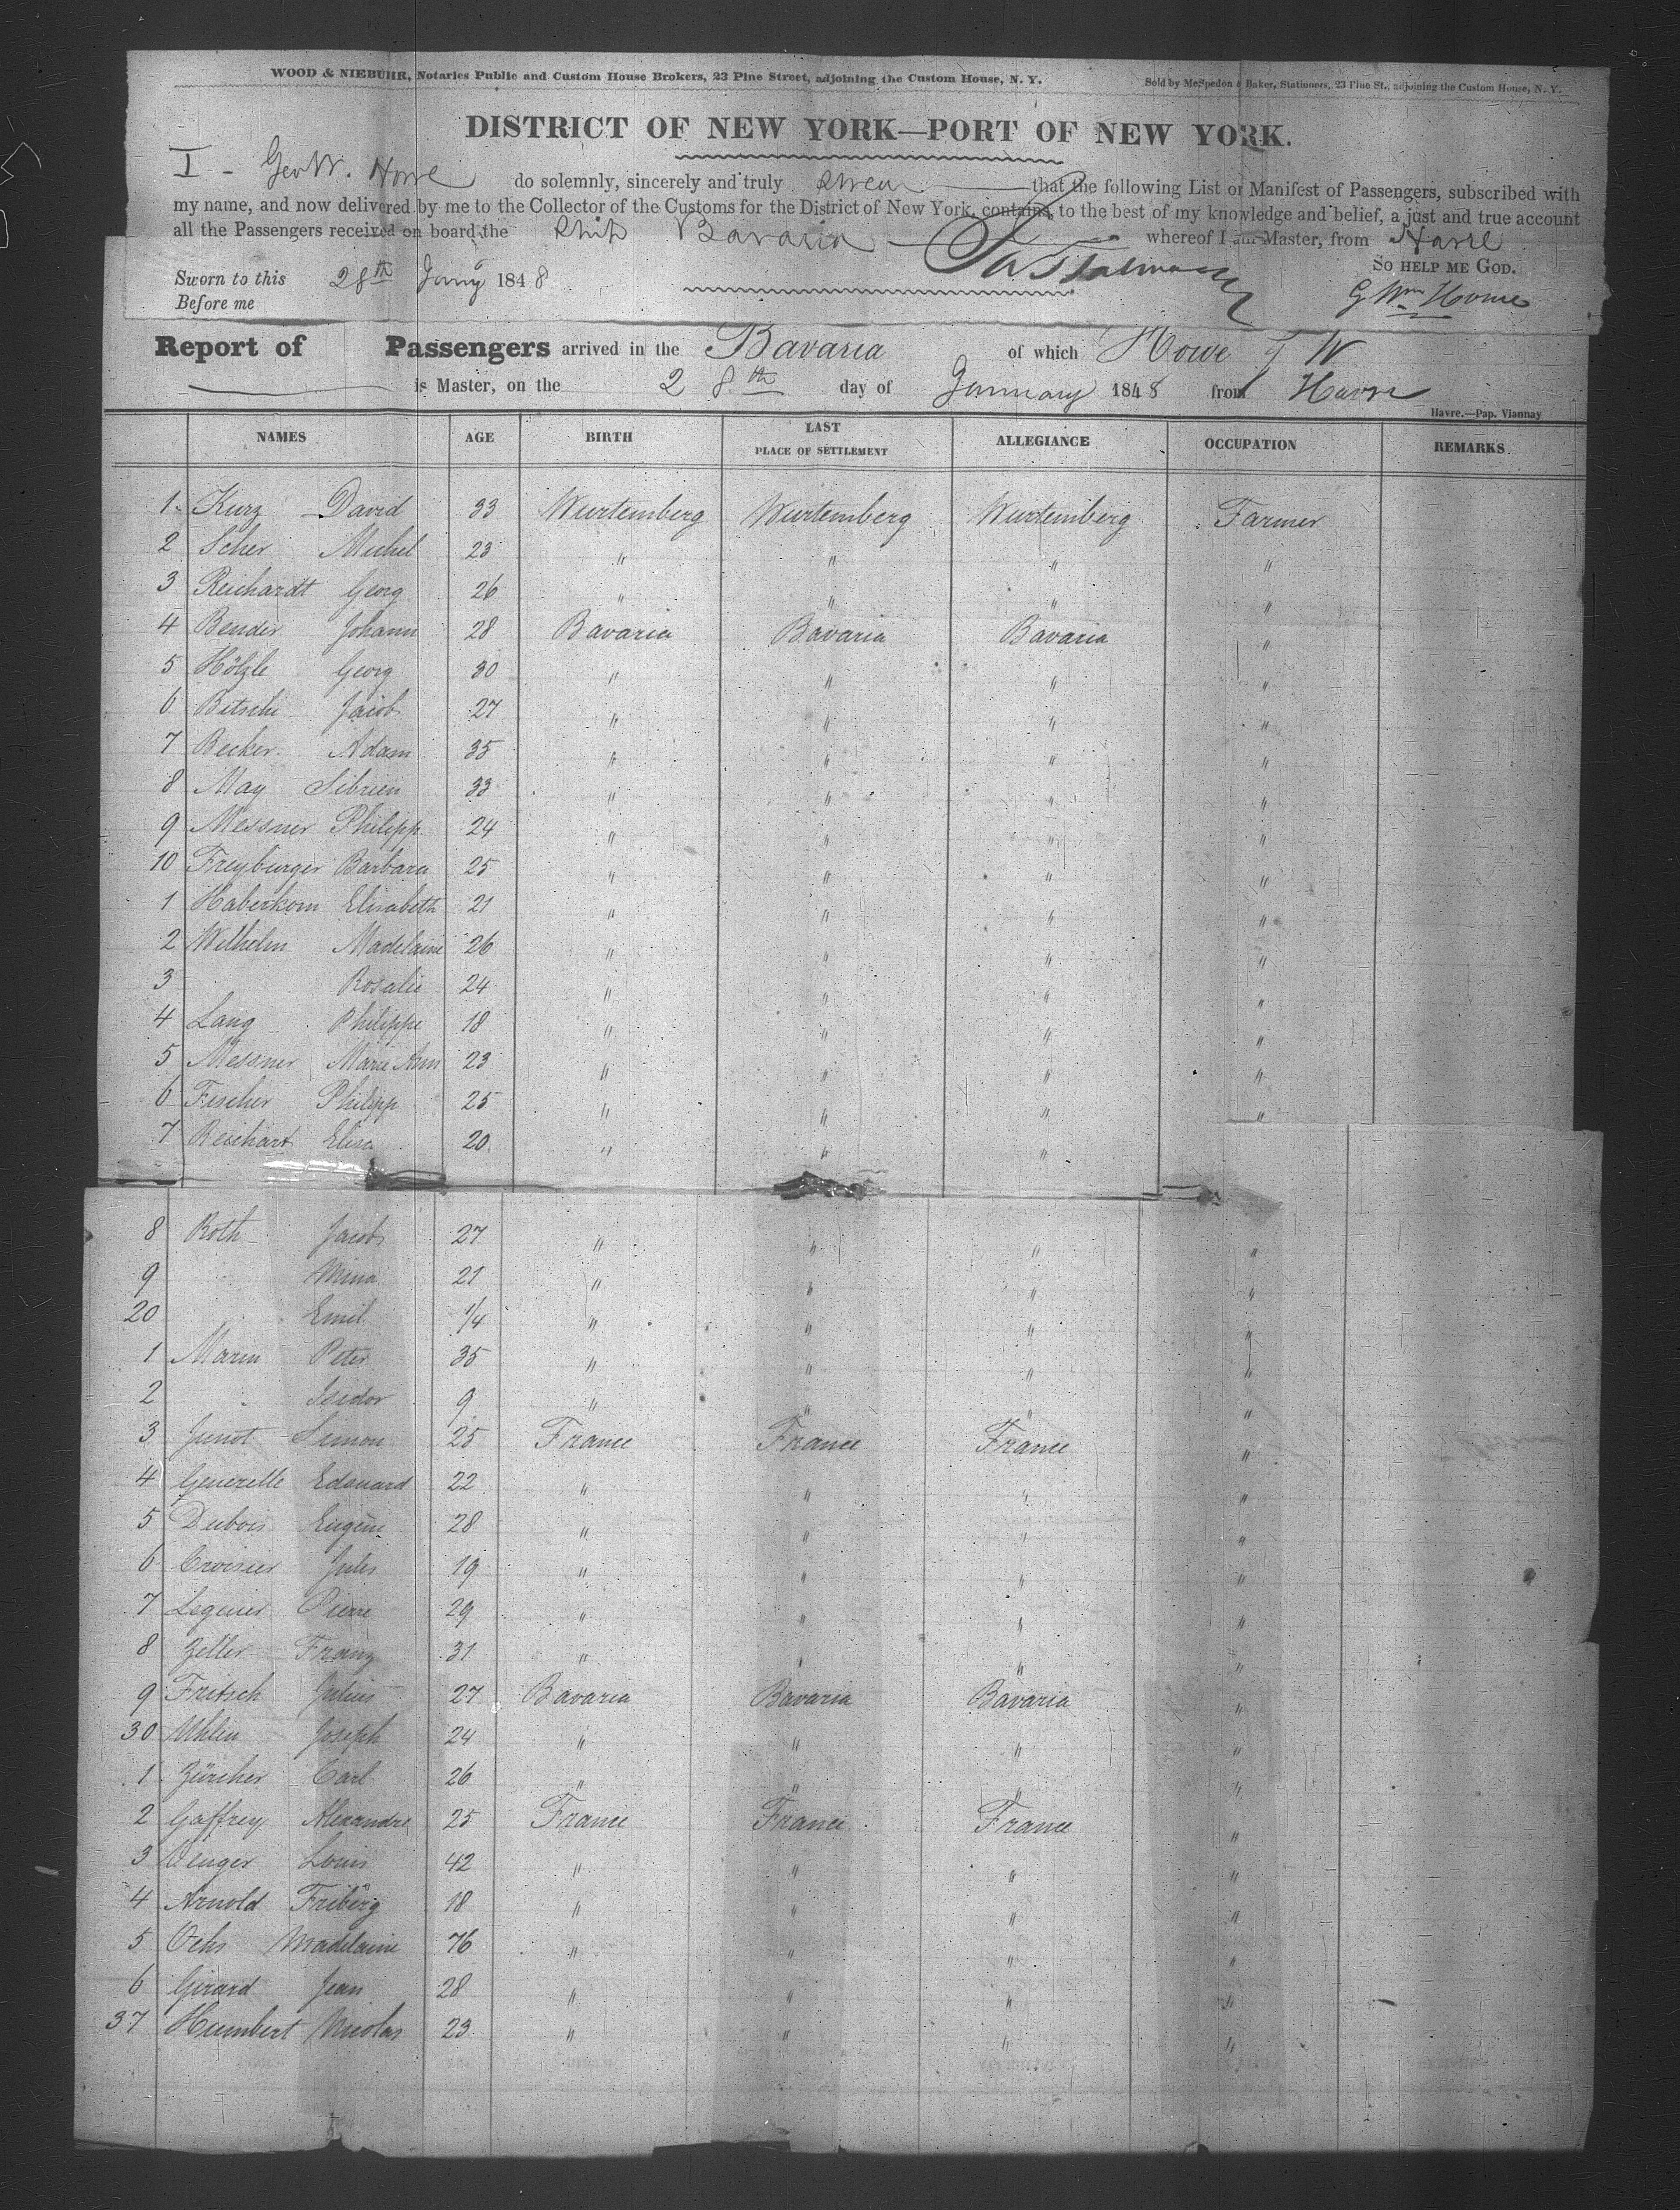 WOOD & NIEBUHR, Notaries Public and Custom House Brokers, 23 Pine Street, adjoining the Custom House, N. Y.
Sold by McSpedon & Baker, Stationers, 23 Pine St., adjoining the Custom House, N. Y.
DISTRICT OF NEW YORK—PORT OF NEW YORK.
I - Geo W. Howe do solemnly, sincerely and truly swear that the following List or Manifest of Passengers, subscribed with
my name, and now delivered by me to the Collector of the Customs for the District of New York, contains, to the best of my knowledge and belief, a just and true account
all the Passengers received on board the Ship Bavaria whereof I am Master, from Havre
SO HELP ME GOD.
Sworn to this 28th Jany 1848
Before me
G Wm Howe
Report of Passengers arrived in the Bavaria of which Howe G W
is Master, on the 28th day of January 1848 from Havre
Havre.—Pap. Viannay
NAMES AGE BIRTH LAST PLACE OF SETTLEMENT ALLEGIANCE OCCUPATION REMARKS.
1. Kurz David 33 Wurtemberg Wurtemberg Wurtemberg Farmer
2 Scher Michel 23 " " " "
3 Reichardt Georg 26 " " " "
4 Bender Johann 28 Bavaria Bavaria Bavaria "
5 Hölzle Georg 30 " " " "
6 Betsche Jacob 27 " " " "
7 Becker Adam 35 " " " "
8 May Sibrien 33 " " " "
9 Messner Philipp 24 " " " "
10 Freyburger Barbara 25 " " " "
1 Haberkorn Elisabeth 21 " " " "
2 Wilhelm Madelaine 26 " " " "
3 Rosalie 24 " " " "
4 Lang Philippe 18 " " " "
5 Messner Marie Ann 23 " " " "
6 Fischer Philipp 25 " " " "
7 Reichart Elisa 20 " " "
8 Roth Jacob 27 " " " "
9 Mina 21 " " " "
20 Emil 1/4 " " " "
1 Marin Peter 35 " " " "
2 Isidor 9 " " " "
3 Junot Simon 25 France France France "
4 Generelle Edouard 22 " " " "
5 Dubois Eugène 28 " " " "
6 Croisier Jules 19 " " " "
7 Legenier Pierre 29 " " " "
8 Zeller Franz 31 " " " "
9 Fritsch Julius 27 Bavaria Bavaria Bavaria "
30 Uhlein Joseph 24 " " " "
1 Zürcher Carl 26 " " " "
2 Gaffrey Alexandre 25 France France France "
3 Venger Louis 42 " " " "
4 Arnold Friberg 18 " " " "
5 Ochs Madelaine 76 " " " "
6 Girard Jean 28 " " " "
37 Humbert Nicolas 23 " " " "